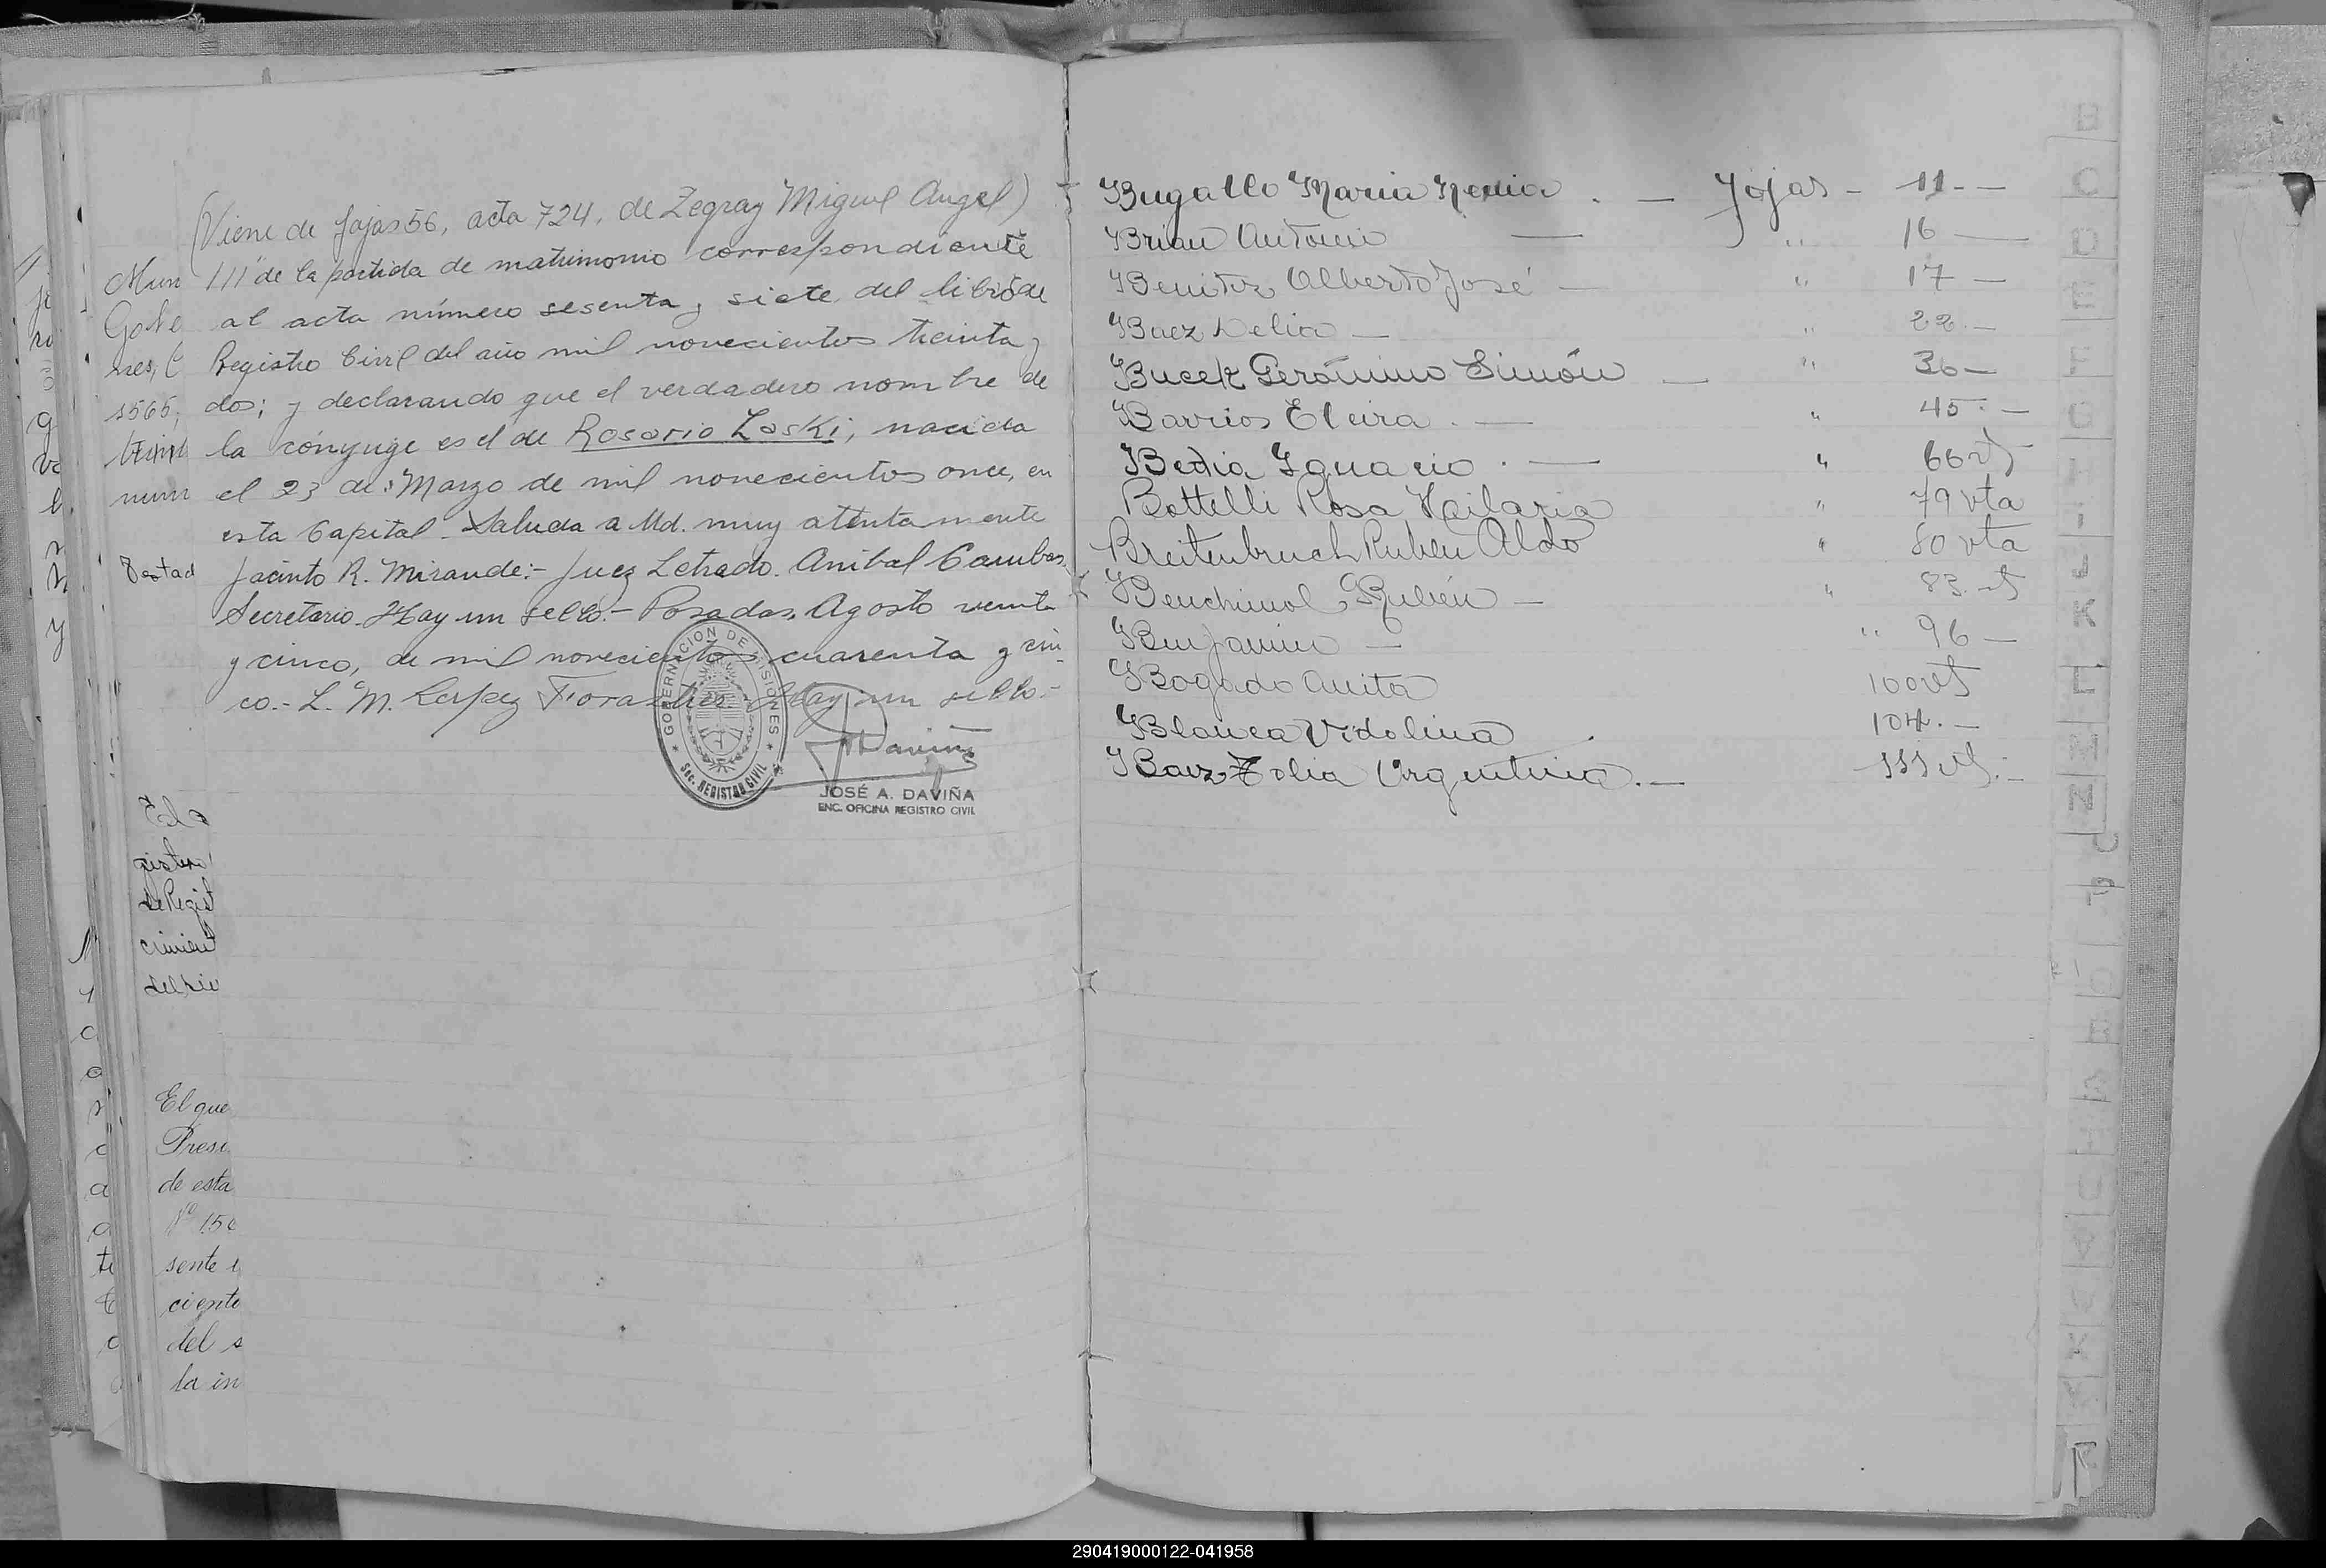 (Viene de fojas 56, acta 724, de Zegray Miguel Angel)
111 de la partida de matrimonio correspondiente
al acta número sesenta y siete del libro de
Registro Civil del año mil novecientos treinta y
dos; y declarando que el verdadero nombre de
la cónyuge es el de Rosario Laski, nacida
el 23 de Marzo de mil novecientos once, en
esta Capital. Saluda a Ud. muy atentamente
Jacinto R. Mirande:- Juez Letrado. Anibal Cambas,
Secretario. Hay un sello.- Posadas, Agosto veinte
y cinco, de mil novecientos cuarenta y cin-
co.- L. M. Hay un sello.-
GOBERNACION DE MISIONES
Sec. REGISTRO CIVIL
JOSÉ A. DAVIÑA
ENC. OFICINA REGISTRO CIVIL
Mun
Gobe
nes, C
1565,
num
Testad
gistro
de Regist
cimient
El que
Presi
de esta
Nº 15
sente
ciento
del s
la in
Bugallo Maria . — Fojas - 11. —
Brian Antonio — " 16 —
Benitez Alberto José — " 17 —
Baez Delia — " 22. —
Bucek Gerónimo Simón — " 36 —
Barrios Elvira . — " 45. —
Bedia Ignacio . — " 66 vt
Bottelli Rosa Hilaria " 79 vta
Breitenbruch Ruben Aldo " 80 vta
Benchimol Rubén — " 83. vt
Benjamin — " 96 —
Bogado Anita 100 vt
Blanca Vidolina 104. —
Baez Zolia Argentina. — 111 vt. —
B
C
D
E
F
G
H
I
J
K
L
M
N
O
P
Q
R
S
T
U
V
X
Y
Z
290419000122-041958